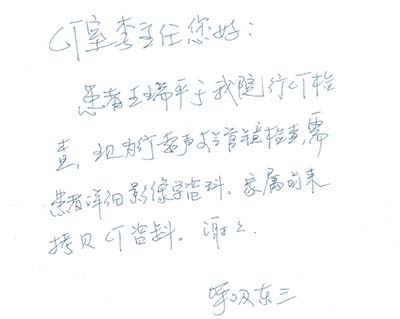 CT室李主任您好：
患者王瑞平于我院行CT检
查，现为行超声支气管镜检查，需
患者详细影像学资料。家属前来
拷贝CT资料。谢谢.
呼吸东三